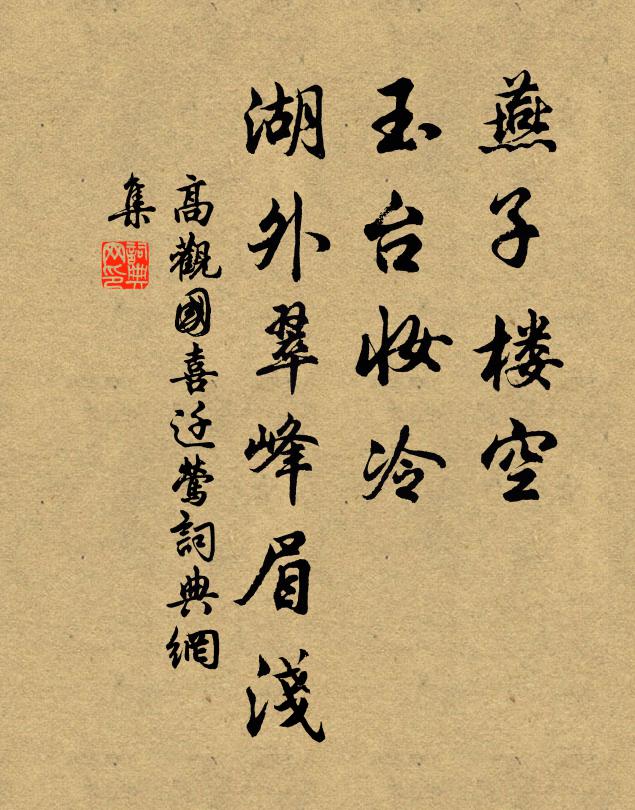 燕子楼空
玉台妆冷
湖外翠峰眉淺
高觀國喜迁鶯詞典網
集
詞典网印